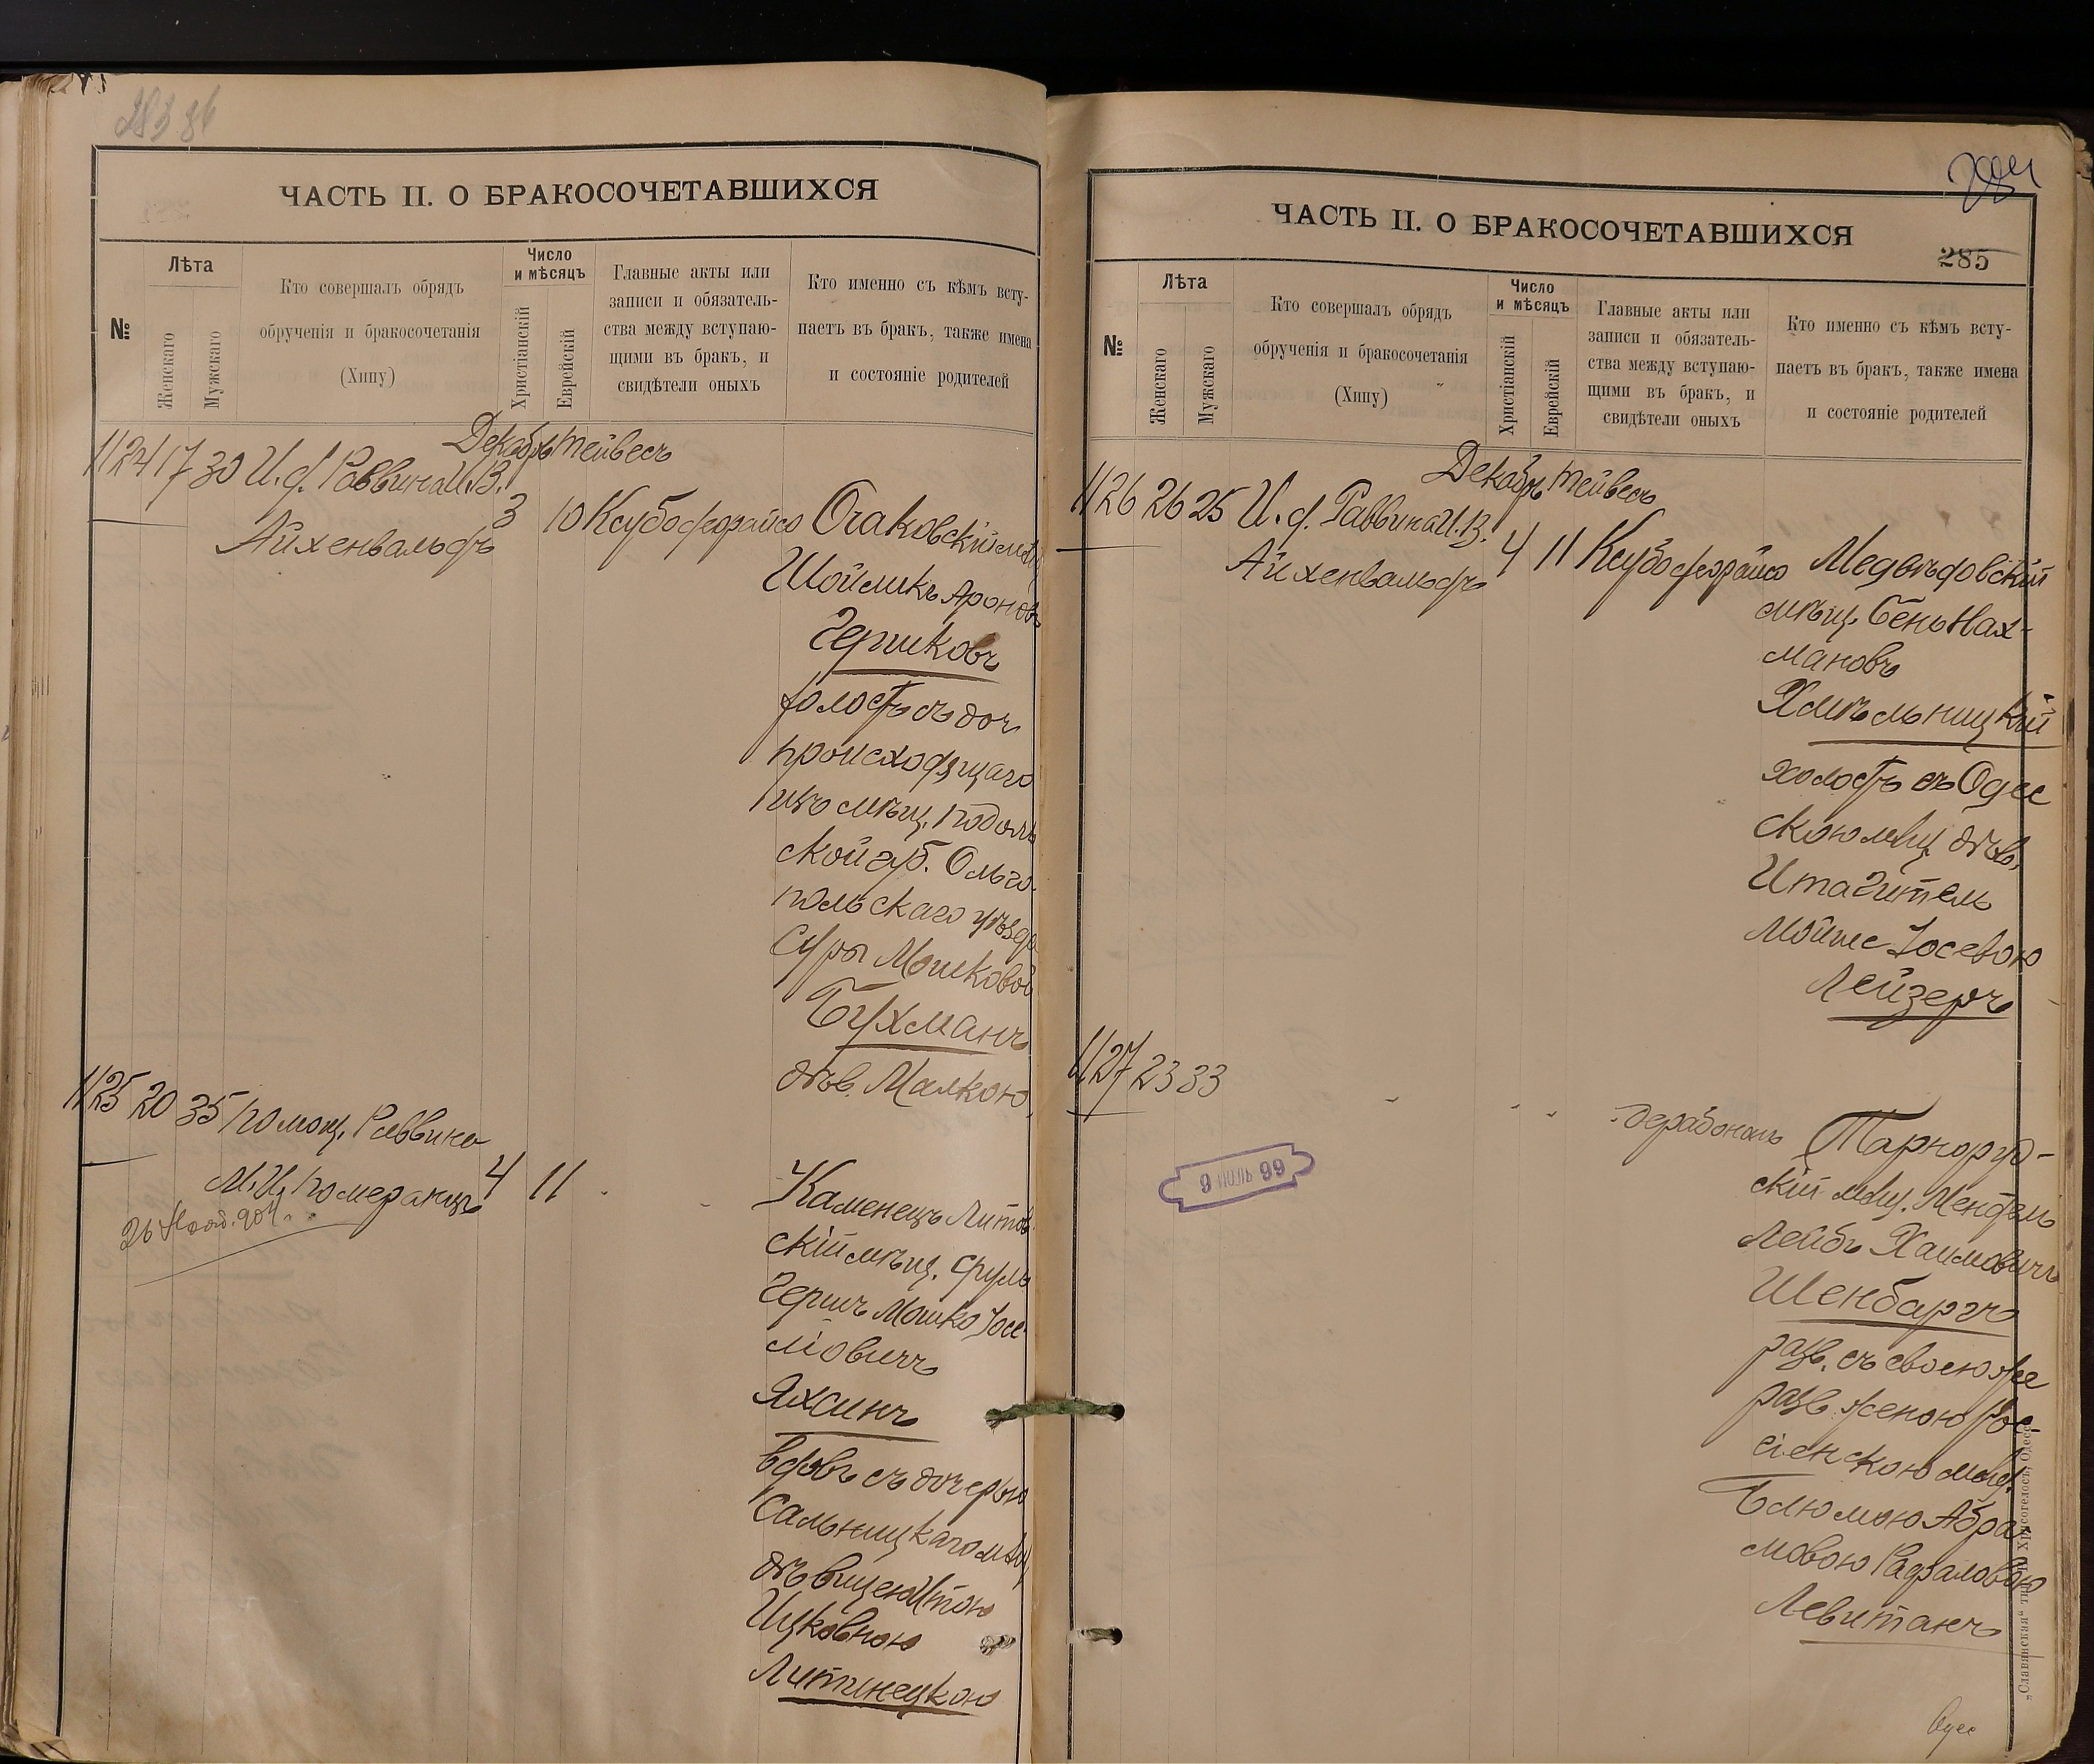 ЧАСТЬ II. О БРАКОСОЧЕТАВШИХСЯ
№
Лѣта
Женскаго
Мужскаго
Кто совершалъ обрядъ
обрученія и бракосочетанія
(Хипу)
Число
и мѣсяцъ
Христіанскій
Еврейскій
Главные акты или
записи и обязатель-
ства между вступаю-
щими въ бракъ, и
свидѣтели оныхъ
Кто именно съ кѣмъ всту-
паетъ въ бракъ, также имена
и состояніе родителей
Декабрь Тейвесъ
1124 17 30 И. д. Раввина И. В.
Айхенвальдъ
3 10 Ксубо дерайсо Очаковскій мѣщ
Шойликъ Аронов
Гершковъ
холостъ съ доч
происходящаго
изъ мѣщ. Подоль
ской губ. Ольго-
польскаго уѣзда
Суры Мошковой
Бухманъ
дѣв. Малкою
1125 20 35 Помощ. Раввина
М. И. Померанцъ
4 11
Каменецъ Литов
скій мѣщ. Сруль
Гершъ Мошко Іосе-
ліовичъ
Яхсинъ
вдовъ съ дочерью
Сальницкаго мѣщ
дѣвицею Итою
Ицковною
Литинецкою
ЧАСТЬ II. О БРАКОСОЧЕТАВШИХСЯ
285
№
Лѣта
Женскаго
Мужскаго
Кто совершалъ обрядъ
обрученія и бракосочетанія
(Хипу)
Число
и мѣсяцъ
Христіанскій
Еврейскій
Главные акты или
записи и обязатель-
ства между вступаю-
щими въ бракъ, и
свидѣтели оныхъ
Кто именно съ кѣмъ всту-
паетъ въ бракъ, также имена
и состояніе родителей
Декабрь Тейвесъ
1126 26 25 И. д. Раввина И. В.
Айхенвальдъ
4 11 Ксубо дерайсо Медвѣдовскій
мѣщ. Бень Нах-
мановъ
Хмѣльницкій
холостъ съ Одес
скою мѣщ. дѣв.
Ита Гитель
Мойше Іосевою
Лейзеръ
1127 23 33
дерабонанъ Тарноруд-
скій мѣщ. Мендель
Лейбъ Хаимовичъ
Шенбаргъ
разв. съ своею же
разв. женою Рос-
сіенскою мѣщ.
Блюмою Абра
мовою Рафаловою
Левитанъ
„Славянская“ тип. Н. Хрисогелосъ, Одесса